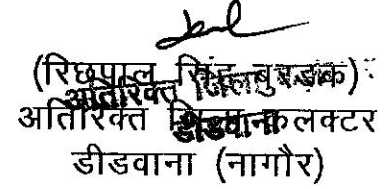 (रिछपाल सिंह बुरडक)
अतिरिक्त जिला कलक्टर
डीडवाना (नागौर)
अतिरिक्त जिला कलक्टर
डीडवाना